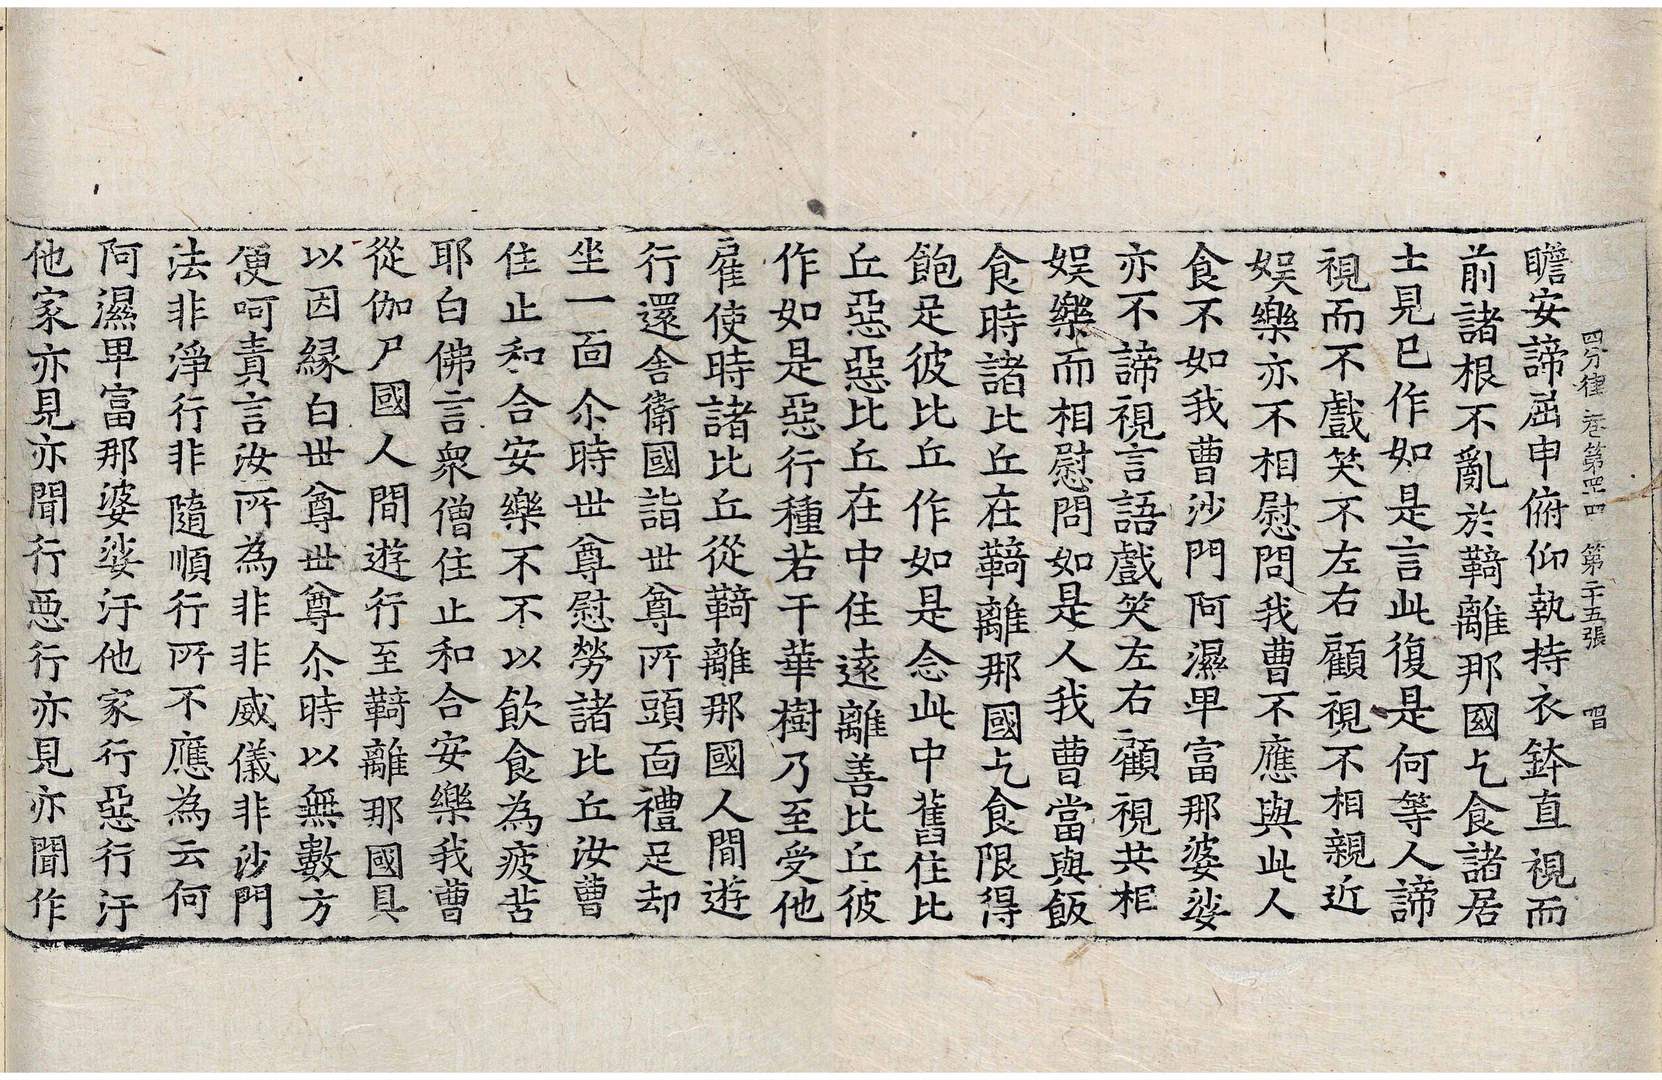 四分律 卷第四十四 第二十五張 唱
瞻安諦屈申俯仰執持衣鉢直視而
前諸根不亂於鞊離那國乞食諸居
士見已作如是言此復是何等人諦
視而不戲笑不左右顧視不相親近
娛樂亦不相慰問我曹不應與此人
食不如我曹沙門阿濕卑富那婆娑
亦不諦視言語戲笑左右顧視共相
娛樂而相慰問如是人我曹當與飯
食時諸比丘在鞊離那國乞食限得
飽足彼比丘作如是念此中舊住比
丘惡惡比丘在中住遠離善比丘彼
作如是惡行種若干華樹乃至受他
雇使時諸比丘從鞊離那國人間遊
行還舍衛國詣世尊所頭面禮足却
坐一面尒時世尊慰勞諸比丘汝曹
住止和合安樂不不以飲食為疲苦
耶白佛言衆僧住止和合安樂我曹
從伽尸國人間遊行至鞊離那國具
以因緣白世尊世尊尒時以無數方
便呵責言汝所為非非威儀非沙門
法非淨行非隨順行所不應為云何
阿濕卑富那婆娑汙他家行惡行汙
他家亦見亦聞行惡行亦見亦聞作